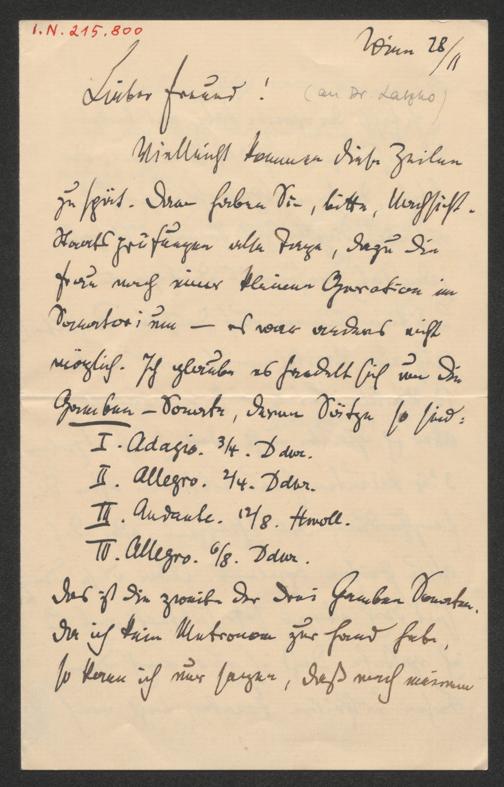 I.N. 215.800
Wien 28/11
Lieber Freund!
(an Dr. Latzko)
Vielleicht kommen diese Zeilen
zu spät. Dann haben Sie, bitte, Nachsicht.
Staatsprüfungen alle Tage, dazu die
Frau nach einer kleinen Operation im
Sanatorium – es war anders nicht
möglich. Ich glaube es handelt sich um die
Gamben-Sonate, deren Sätze so sind:
I. Adagio. 3/4. Ddur.
II. Allegro. 2/4. Ddur.
III. Andante. 12/8. Hmoll.
IV. Allegro. 6/8. Ddur.
Das ist die zweite der drei Gamben Sonaten.
Da ich kein Metronom zur Hand habe,
so kann ich nur sagen, daß nach meinem